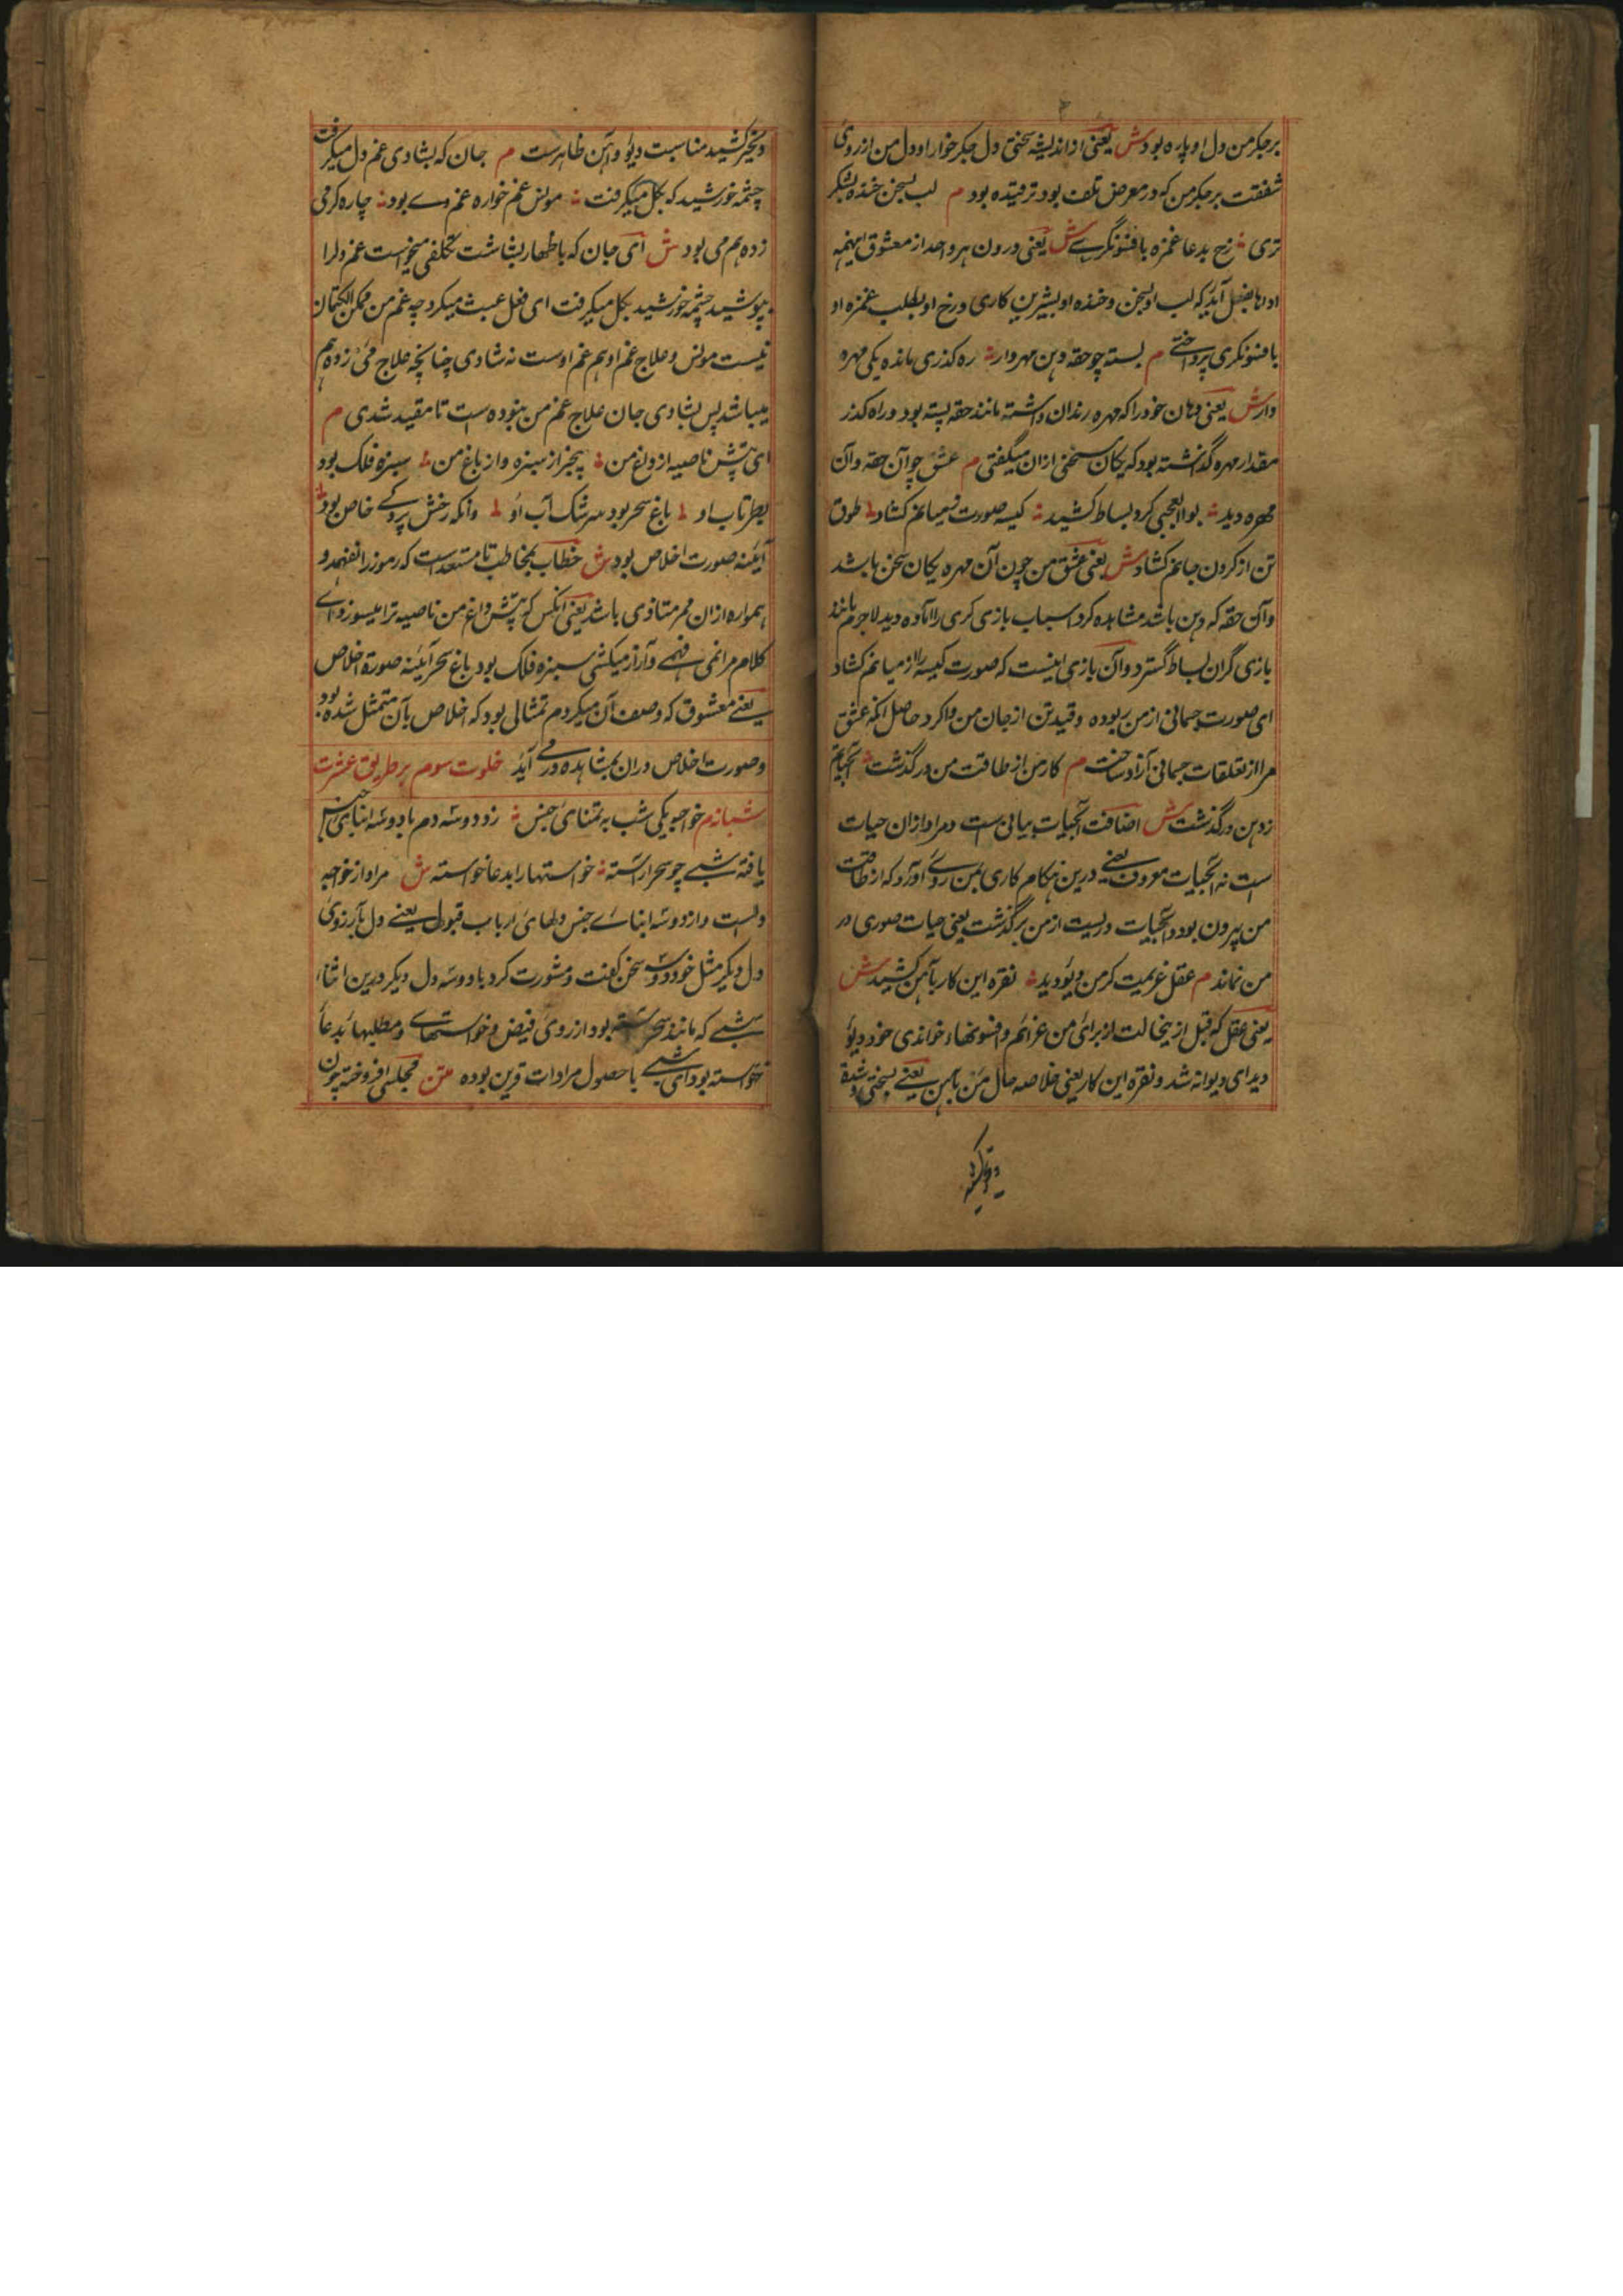 بر جگر من دل او پاره بود ش یعنی از اندیشه سختی دل جگر خوار او دل من از روی
شفقت بر جگر من که در معرض تلف بود ترقیده بود م لب بسخن خنده بشکر
تری ؞ رخ بدعا غمزه بافسونگری ش یعنی درون هر واحد از معشوق اینهمه
اداها بفعل آید که لب او بسخن و خنده او بشیرین کاری و رخ او بطلب غمزه او
بافسونگری پرداختی م بسته چو حقه دهن مهره دار ؞ ره گذری مانده یکی مهره
وار ش یعنی دهان خود را که مهره دندان داشته مانند حقه بسته بود و راه گذر
مقدار مهره گذاشته بود که یکان سخنی ازان میگفتی م عشق چو آن حقه و آن
مهره دید ؞ بوالعجبی کرد و بساط کشید ؞ کیسه صورت ز میانم گشاد ؞ طوق
تن از گردن جانم گشاد ش یعنی عشق من چون آن مهره یکان سخن باشد
و آن حقه که دهن باشد مشاهده کرد اسباب بازی گری را آماده دید لاجرم مانند
بازی گران بساط گسترد و آن بازی اینست که صورت کیسه را از میانم گشاد
ای صورت جسمانی از من ربوده و قید تن از جان من وا کرد حاصل آنکه عشق
مرا از تعلقات جسمانی آزاد ساخت م کار من از طاقت من درگذشت ؞ آبحیاتم
ز دهن درگذشت ش اضافت آبحیات بیانی ست و مراد ازان حیات
است نه آبحیات معروف یعنی درین هنگام کاری بمن روی آورد که از طاقت
من بیرون بود و آبحیات زیست از من برگذشت یعنی حیات صوری در
من نماند م عقل عزیمت گر من دیو دید ؞ نقره این کار بآهن کشید ش
یعنی عقل که قبل ازینحالت از برای من عزائم و افسونهاء خواندی خود دیو
دید ای دیوانه شد و نقره این کار یعنی خلاصه حال من بآهن یعنی بسختی و شدة
و زنجیر کشید
و زنجیر کشید مناسبت دیو و آهن ظاهرست م جان که بشادی غم دل میگرفت
چشمه خورشید که بگل میگرفت ؞ مونس غم خواره غم وی بود ؞ چاره گر می
زده هم می بود ش ای جان که باظهار بشاشت تکلفی میخواست غم دل را
بپوشید چشمه خورشید بگل میگرفت ای فعل عبث میکرد چه غم من ممکن الکتمان
نیست مونس و علاج غم او هم غم اوست نه شادی چنانچه علاج می زده هم
میباشد پس بشادی جان علاج غم من ننموده است تا مقید شدی م
ای تپش ناصیه از داغ من ؞ بیخبر از سبزه و از باغ من ؞ سبزه فلک بود
نظر تاب او ؞ باغ سحر بود سرشک آب او ؞ وانکه رخش پردگی خاص بود ؞
آینه صورت اخلاص بود ش خطاب بمخاطب نامستعد است که رموز را نفهمد و
همواره ازان محرم متاذی باشد یعنی ای آنکس که تپش داغ من ناصیه ترا میسوزد ای
کلام مرا نمی فهمی و آزار میکشی سبزه فلک بود باغ سحر آینه صورة اخلاص
یعنی معشوق که وصف آن میکردم تمثالی بود که اخلاص بآن متمثل شده بود
و صورت اخلاص دران بمشاهده در می آید خلوت سوم بر طریق عشرت
شبانه م خواجه یکی شب به تمنای جنس ؞ زد دو سه دم با دو سه ابنای جنس
یافته شبی چو سحر آراسته ؞ خواستها را بدعا خواسته ش مراد از خواجه
دلست و از دو سه ابنای جنس دلهای ارباب قبول یعنی دل بآرزوی
دل دیگر مثل خود دو سه سخن گفت و مشورت کرد با دو سه دل دیگر درین اثناء
شبی که مانند سحر آراسته بود از روی فیض و خواستهای و مطلبها بدعا
خواسته بود ای شبی با حصول مرادات قرین بوده متن مجلسی افروخته چون